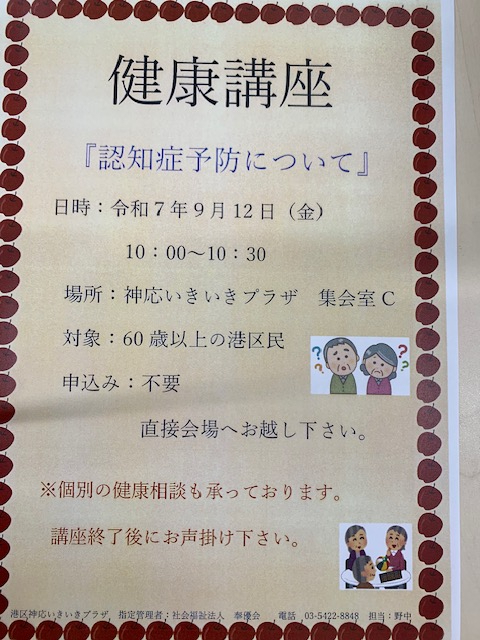 健康講座
『認知症予防について』
日時：令和７年９月１２日（金）
１０：００～１０：３０
場所：神応いきいきプラザ　集会室Ｃ
対象：６０歳以上の港区民
申込み：不要
直接会場へお越し下さい。
※個別の健康相談も承っております。
講座終了後にお声掛け下さい。
港区神応いきいきプラザ　指定管理者：社会福祉法人　奉優会　電話　03-5422-8848　担当：野中